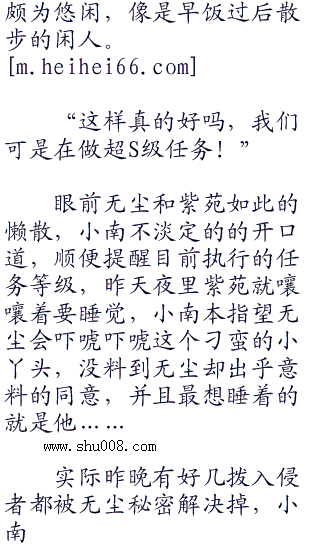 颇为悠闲，像是早饭过后散
步的闲人。
[m.heihei66.com]
“这样真的好吗，我们
可是在做超S级任务！”
眼前无尘和紫苑如此的
懒散，小南不淡定的的开口
道，顺便提醒目前执行的任
务等级，昨天夜里紫苑就嚷
嚷着要睡觉，小南本指望无
尘会吓唬吓唬这个刁蛮的小
丫头，没料到无尘却出乎意
料的同意，并且最想睡着的
就是他……
www.shu008.com
实际昨晚有好几拨入侵
者都被无尘秘密解决掉，小
南